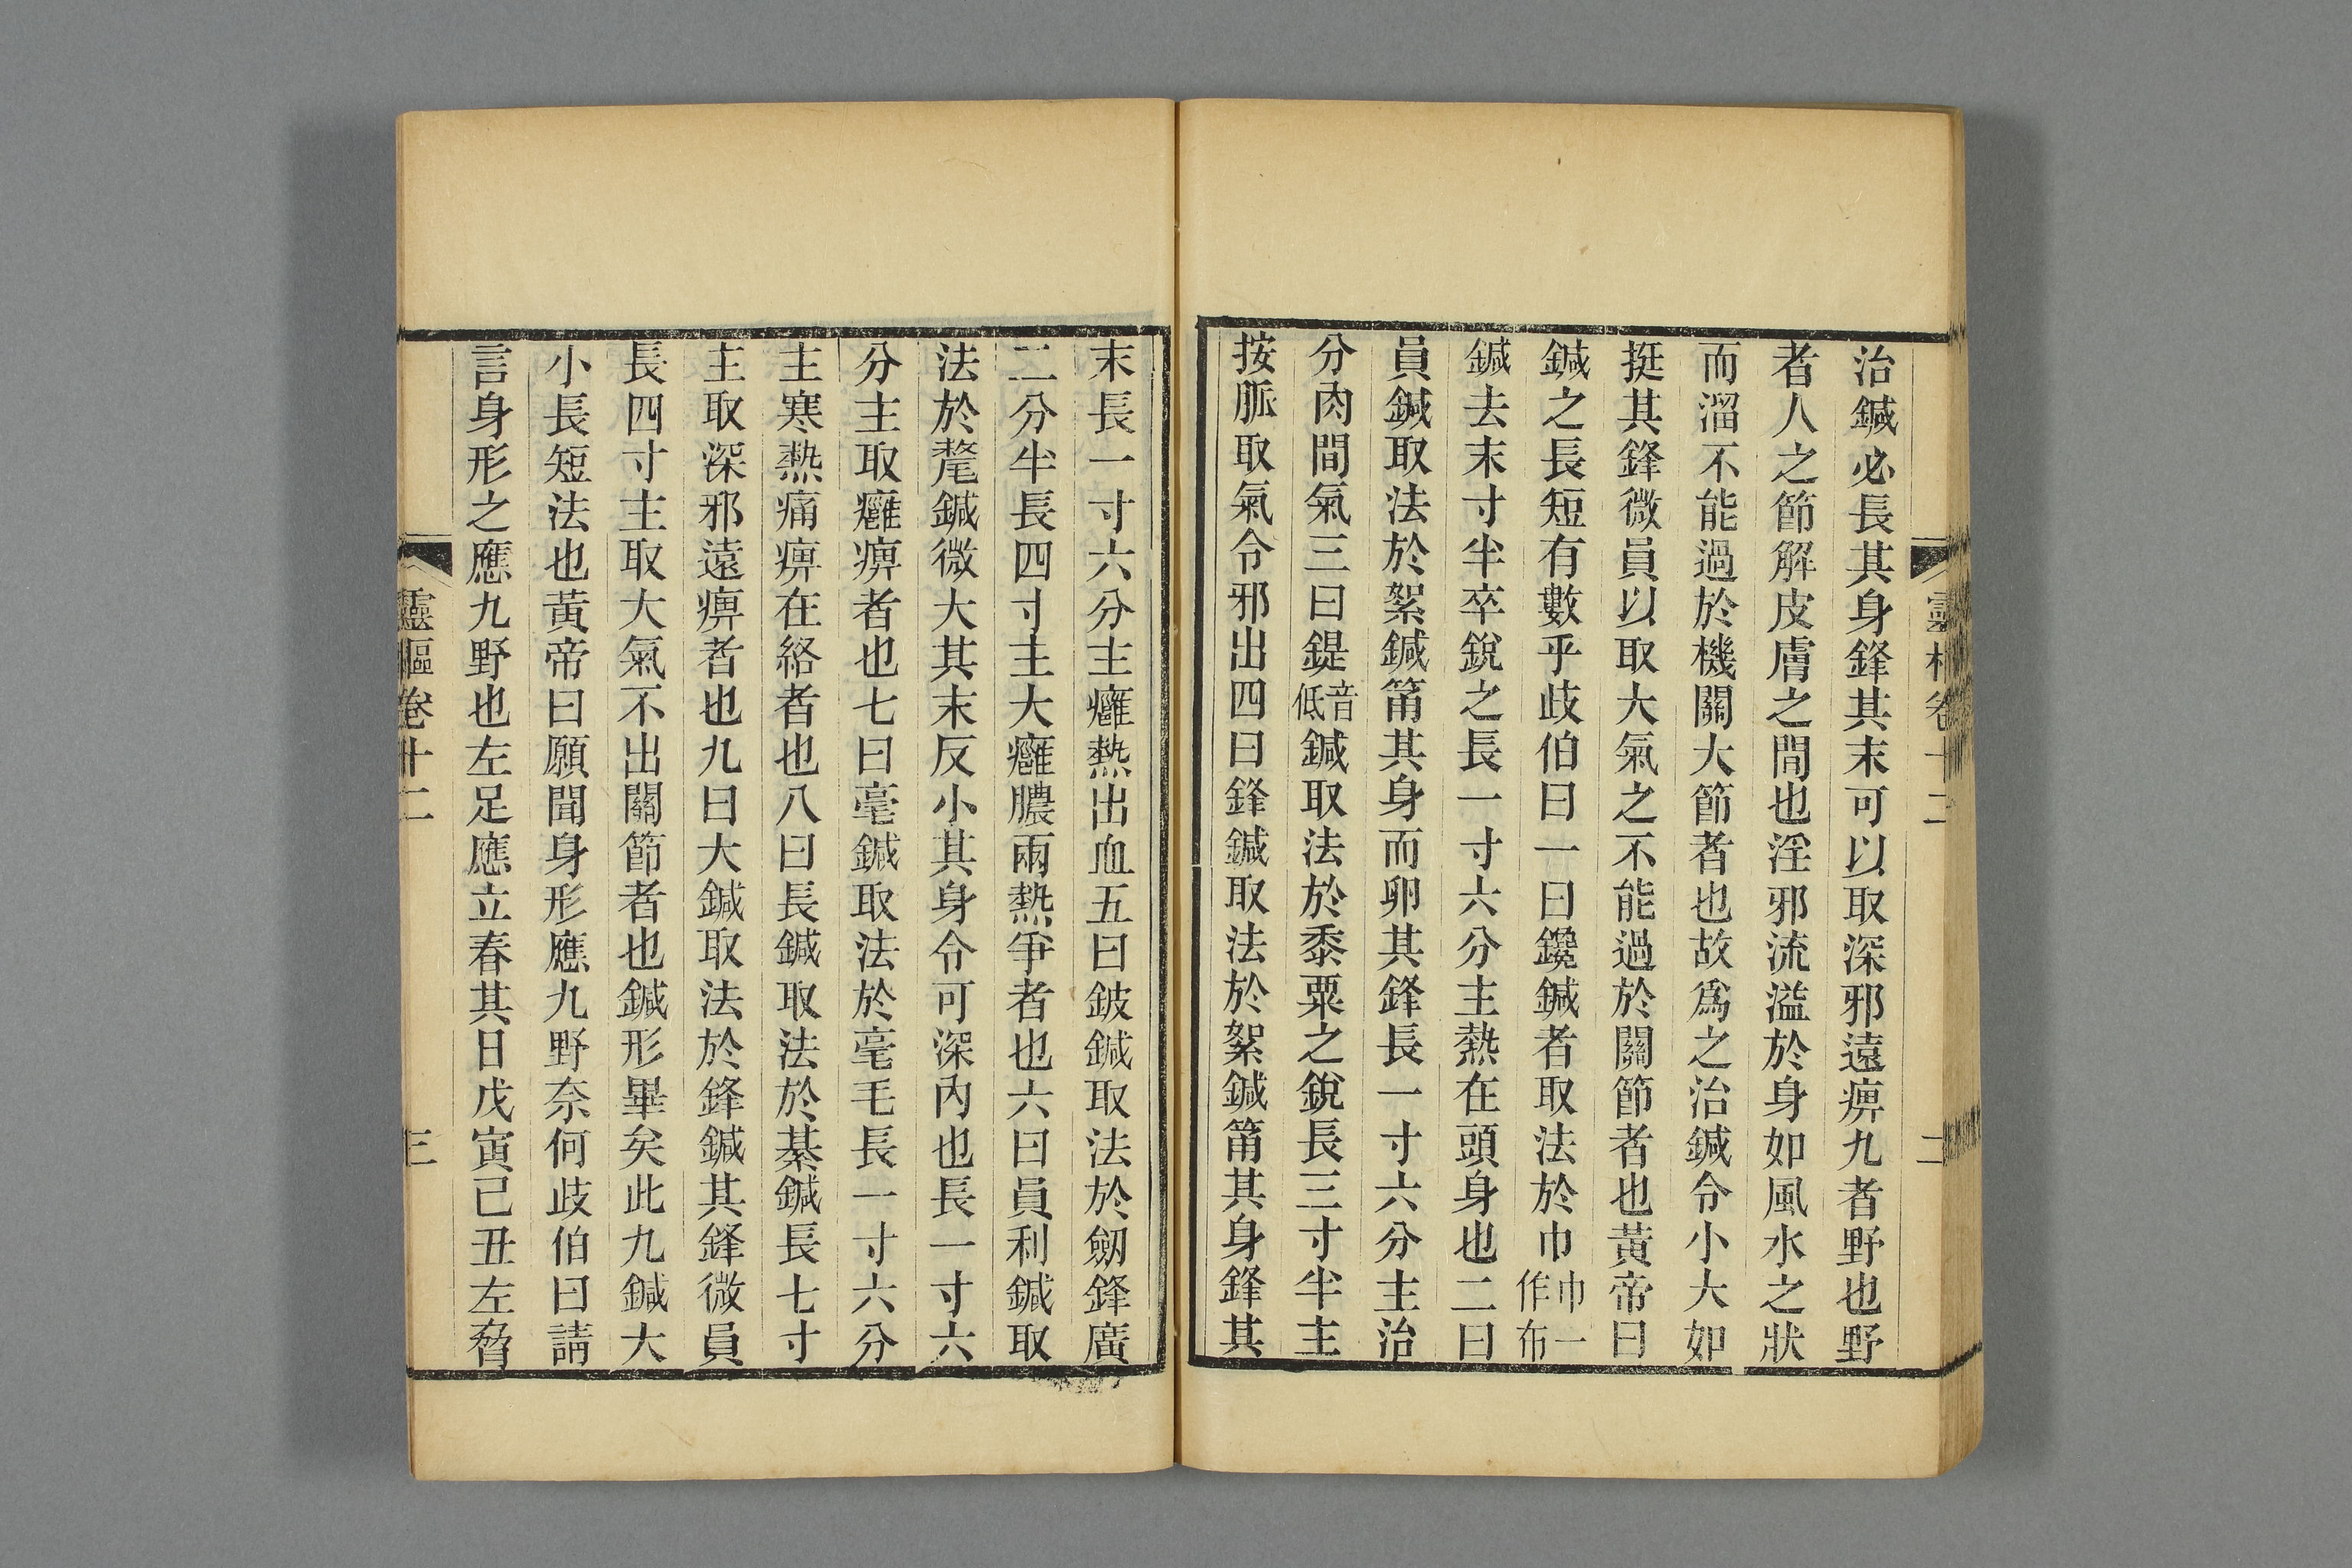 治鍼必長其身鋒其末可以取深邪遠痹九者野也野
者人之節解皮膚之間也淫邪流溢於身如風水之狀
而溜不能過於機關大節者也故爲之治鍼令小大如
挺其鋒微員以取大氣之不能過於關節者也黃帝曰
鍼之長短有數乎歧伯曰一曰鑱鍼者取法於巾巾一作布
鍼去末寸半卒銳之長一寸六分主熱在頭身也二曰
員鍼取法於絮鍼筩其身而卵其鋒長一寸六分主治
分肉間氣三曰鍉音低鍼取法於黍粟之銳長三寸半主
按脈取氣令邪出四曰鋒鍼取法於絮鍼筩其身鋒其
末長一寸六分主癰熱出血五曰鈹鍼取法於劒鋒廣
二分半長四寸主大癰膿兩熱爭者也六曰員利鍼取
法於氂鍼微大其末反小其身令可深內也長一寸六
分主取癰痹者也七曰毫鍼取法於毫毛長一寸六分
主寒熱痛痹在絡者也八曰長鍼取法於綦鍼長七寸
主取深邪遠痹者也九曰大鍼取法於鋒鍼其鋒微員
長四寸主取大氣不出關節者也鍼形畢矣此九鍼大
小長短法也黃帝曰願聞身形應九野奈何歧伯曰請
言身形之應九野也左足應立春其日戊寅己丑左脅
靈樞卷十二 三